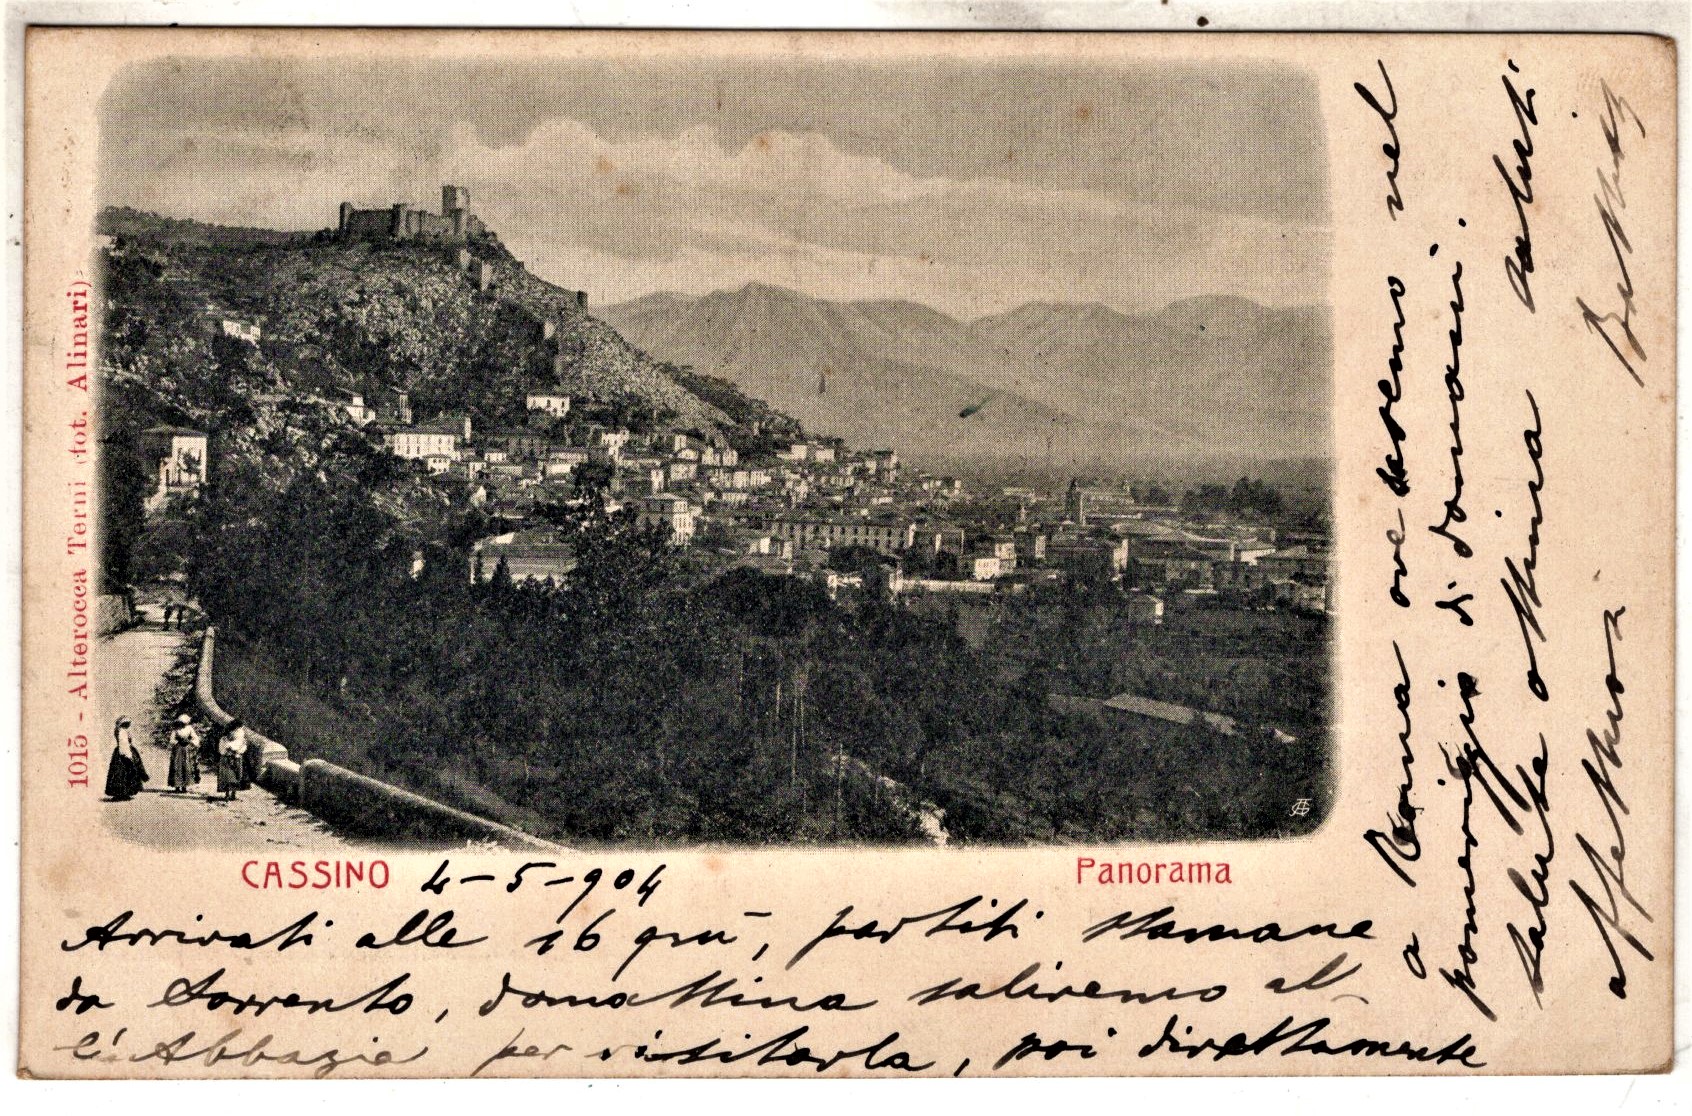 1015 - Alterocca Terni (fot. Alinari)
CASSINO 4-5-904
Panorama
Arrivati alle 16 qui, partiti stamane
da Sorrento, domattina saliremo al-
l'Abbazia per visitarla, poi direttamente
a Roma ove saremo nel
pomeriggio di domani.
Salute ottima saluti
affettuosi